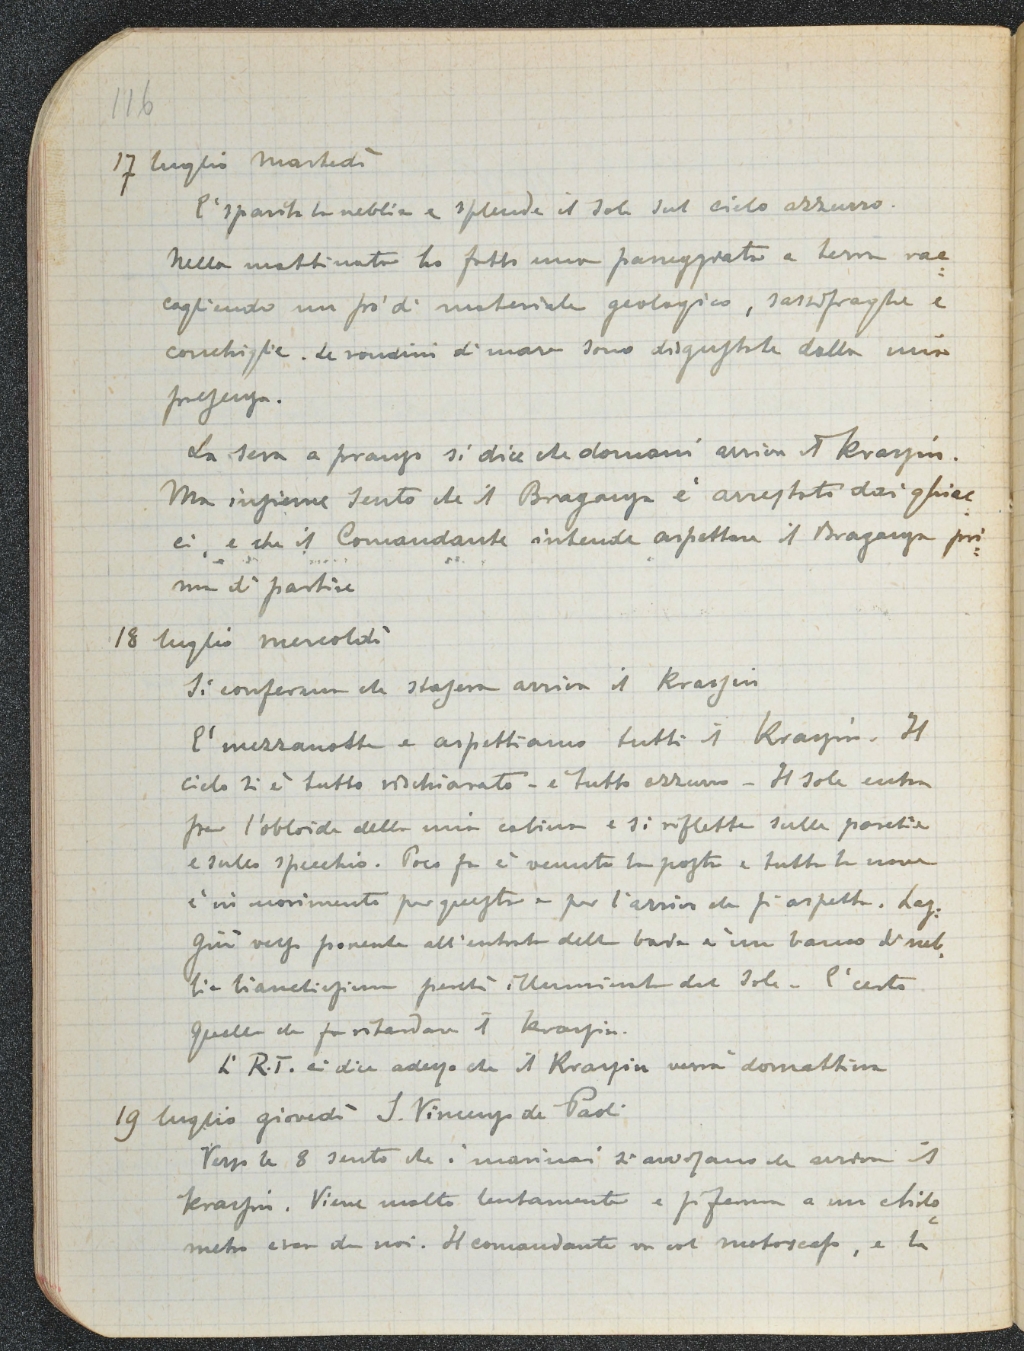 116
17 luglio martedì
E' sparita la nebbia e splende il sole sul cielo azzurro.
Nella mattinata ho fatto una passeggiata a terra rac=
cogliendo un po' di materiale geologico, sassifraghe e
conchiglie. Le rondini di mare sono disgustate della mia
presenza.
La sera a pranzo si dice che domani arriva il Krassin.
Ma insieme sento che il Braganza è arrestato dai ghiac=
ci, e che il Comandante intende aspettare il Braganza pri=
ma di partire
18 luglio mercoldì
Si conferma che stasera arriva il Krassin
E' mezzanotte e aspettiamo tutti il Krassin. Il
cielo si è tutto rischiarato - è tutto azzurro - Il sole entra
per l'obloide della mia cabina e si riflette sulle paretie
e sullo specchio. Poco fa è venuta la posta e tutta la nave
è in movimento per questa e per l'arrivo che si aspetta. Lag=
giù verso ponente all'entrata della baia è un banco di neb=
bia bianchissima perchè illuminata dal sole - E' certo
quella che fa ritardare il Krassin.
L' R.T. ci dice adesso che il Krassin verrà domattina
19 luglio giovedì S. Vincenzo de Paoli
Verso le 8 sento che i marinai si avvisano che arriva il
Krassin. Viene molto lentamente e si ferma a un chilo=
metro circa da noi. Il comandante va col motoscafo, e la